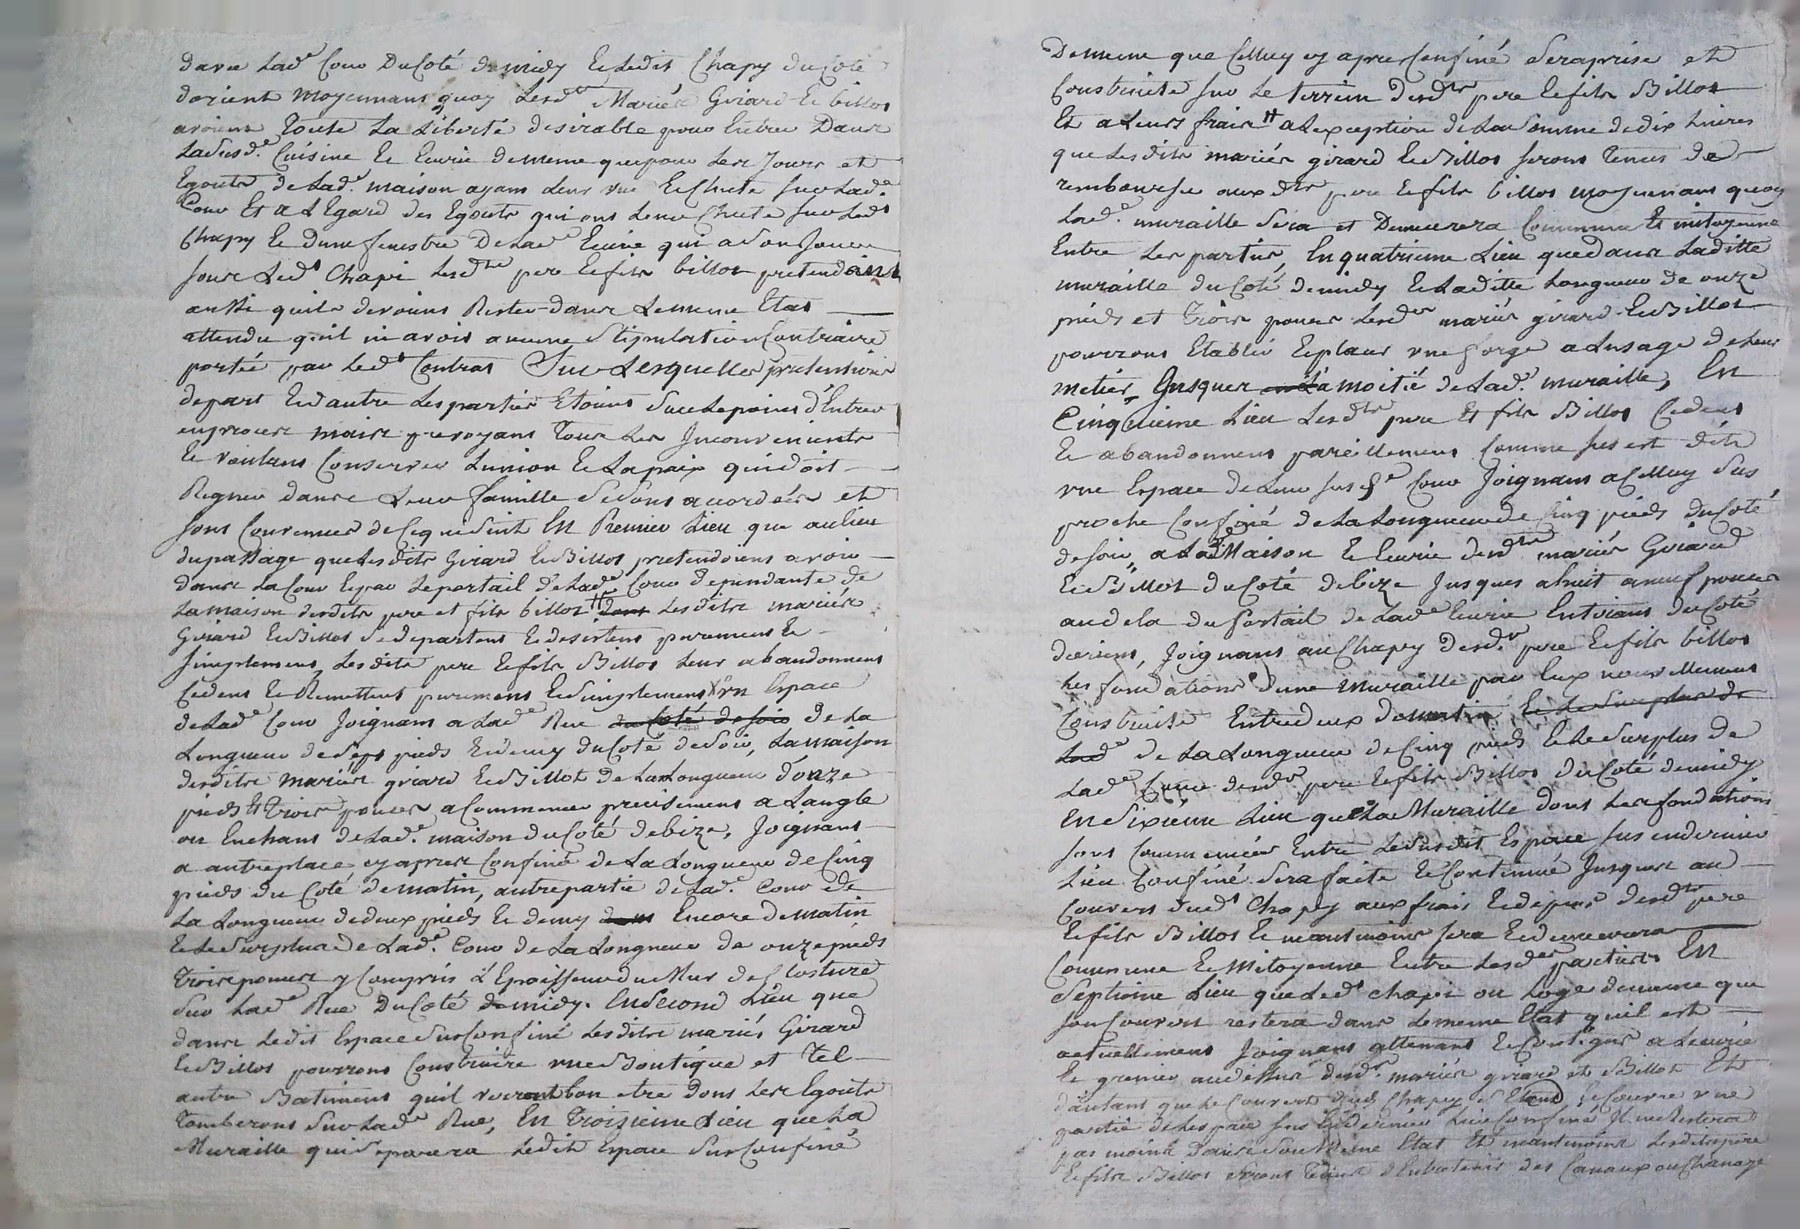 davu Lad.e Cour Du Coté de midy Et Ledit Chapy du Coté
dorient Moyennant quoy Lesd.ts Mariés Girard Et billot
avoient Toute La Liberté desirable pour Entrer Dans
Lasusd.e Cuisine Et Ecurie de meme que pour Les Jours et
Egouts de Lad.e maison ayant Leur vue Et Chute sur Lad.e
Cour Et a LEgard des Egouts qui ont Leur Chute sur Led.t
Chapy Et dune fenestre De Lad.e Ecurie qui a son
Jour Led.t Chapi Lesd.ts pere Et fils billot pretendoient
aussi quils devoient Rester dans Le meme Etat
attendu quil ni avoit aucune Stipulation Contraire
portée par Led.t Contrat Sur Lesquelles pretentions
de part Et dautre Les parties Etoient Sur Le point d'Entrer
en proces mais prevoyant Tous Les Inconvenients
Et voulant Conserver Lunion Et La paix qui doit
Regner dans Leur famille Se sont accordées et
sont Convenues de Ce qui Suit En Premier Lieu que au lieu
du passage que Lesdits Girard Et Billot pretendoient avoir
dans La Cour Et par Le portail de Lad.e Cour dependante de
La maison desdits pere et fils billot # dans Lesdits mariés
Girard Et Billot Se departent Et desistent purement Et
simplement, Lesdits pere Et fils Billot Leur abandonnent
Cedent Et Remettent purement Et simplement Un Espace
de Lad.e Cour Joignant a Lad.e Rue du Coté de soir de La
Longueur de Sept pieds Et demy du Coté de Soir, La maison
desdits mariés girard Et Billot de La Longueur d'onze
pieds Et trois pouces a Commencer precisement a Langle
ou Enchant de Lad.e maison du Coté de bize, Joignant
a autre place cy apres Confiné de La Longueur de Cinq
pieds du Coté de matin, autre partie de Lad.e Cour de
La Longueur de deux pieds Et demy dans Encore de matin
Et Le Surplus de Lad.e Cour de La Longueur de onze pieds
trois pouces y Compris L'Epaisseur du Mur de Closture
Sur Lad.e Rue Du Coté de midy. En Second Lieu que
dans Ledit Espace Sus Confiné Lesdits mariés Girard
Et Billot pourront Construire une Boutique et Tel
autre Batiment quil verront bon etre dont Les Egouts
Tomberont Sur Lad.e Rue, En Troisieme Lieu que La
Muraille qui Separera Ledit Espace Sus Confiné
De meme que Celluy cy apres Confiné Sera prise et
Construite sur Le terrein desd.ts pere Et fils Billot
Et a Leurs frais # a Lexception de La Somme de dix Livres
que Lesdits mariés girard Et Billot seront Tenus de
rembourser auxd.ts pere Et fils billot moyennant quoy
Lad.e muraille Sera et Demeurera Commune Et mitoyenne
Entre Les parties, En quatrieme Lieu que dans Laditte
muraille du Coté de midy Et Laditte Longueur de onze
pieds et Trois pouces Lesd.ts mariés girard Et Billot
pourront Etablir Et placer une forge a Lusage de Leur
metier, Jusques a La moitié de Lad.e muraille, En
Cinquieme Lieu Lesd.ts pere Et fils Billot Cedent
Et abandonnent pareillement Comme sus est dit
une Espace de Leur sus d.e Cour Joignant a Celluy Sus
proche Confiné de La Longueur de Cinq pieds du Coté
de soir, a La Maison Et Ecurie desd.ts mariés Girard
Et Billot du Coté de bize Jusques a huit a neuf pouces
au dela du Portail de Lad.e Ecurie Entirant du Coté
dorient, Joignant au Chapy desd.ts pere Et fils billot
Les fondations dune Muraille par Eux nouvellement
Construite Entre deux de matin, Et Le Surplus de
Lad.e de La Longueur de Cinq pieds Et Le Surplus de
Lad.e Cour desd.ts pere Et fils Billot du Coté de midy
En Sixiéme Lieu que La Muraille dont Les fondations
sont Commencées Entre Le Susdit Espace Sus en dernier
Lieu Confiné Sera faite Et Continué Jusques au
Couvert dud.t Chapy aux frais Et depens desd.ts pere
Et fils Billot Et neantmoins sera Et demeurera
Commune Et Mitoyenne Entre Lesd.tes parties En
Septieme Lieu que Led.t Chapi ou Loge de meme que
son Couvert restera dans Le meme Etat quil est
actuellement Joignant attenant Et Contigue a Lecurie
Et grenier au dessus desd.ts mariés girard Et Billot Et
dautant que Le Couvert dud.t Chapy Et Couvre une
partie de Lespace sus En dernier Lieu Confiné Il ne Restera
pas moins dans Son meme Etat Et neantmoins Lesdits pere
Et fils Billot Seront Tenus d'Entretenir des Canaux ou Chanaye